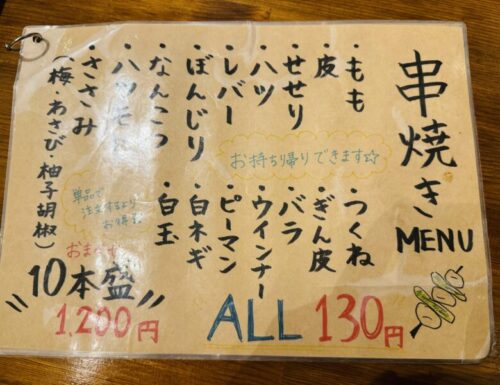 串焼き
MENU
・もも
・皮
・せせり
・ハツ
・レバー
・ぼんじり
・なんこつ
・ハツモト
・ささみ
(梅・わさび・柚子胡椒)
お持ち帰りできます☆
・つくね
・ぎん皮
・バラ
・ウインナー
・ピーマン
・白ネギ
・白玉
ALL 130円
単品で
注文するより
お得!!
10本盛
1,200円